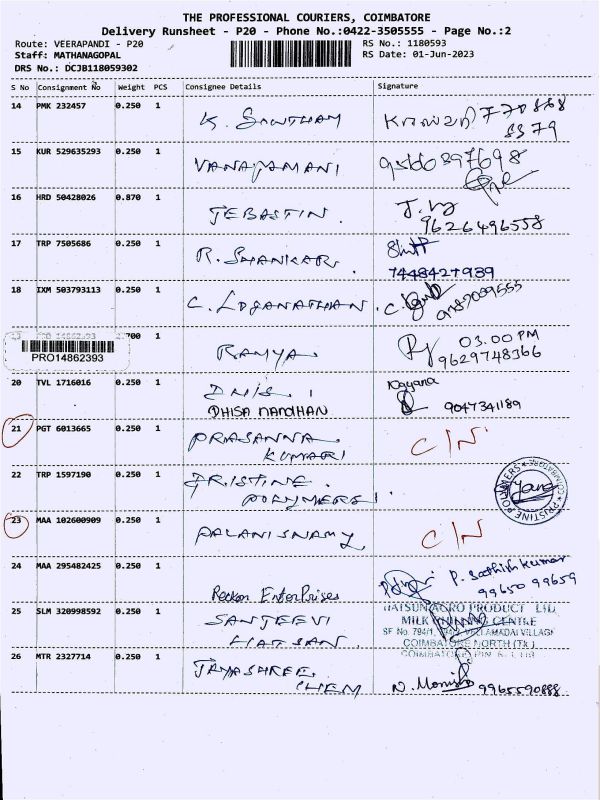 THE PROFESSIONAL COURIERS, COIMBATORE
Delivery Runsheet - P20 - Phone No.:0422-3505555 - Page No.:2
Route: VEERAPANDI - P20
RS No.: 1180593
Staff: MATHANAGOPAL
RS Date: 01-Jun-2023
DRS No.: DCJB118059302
S No Consignment No Weight PCS Consignee Details Signature
14 PMK 232457 0.250 1 K. GOWTHAM 770868
8379
15 KUR 529635293 0.250 1 VANAJAMANI
16 HRD 50428026 0.870 1 JEBASTIN.
9626496558
17 TRP 7505686 0.250 1 R. SHANKAR.
7448427939
18 IXM 503793113 0.250 1 C. LOGANATHAN.
PRO14862393
1 RAMYA. 03.00 PM
9629748366
20 TVL 1716016 0.250 1
DHISA NANDHAN 9047341189
21 PGT 6013665 0.250 1 PRASANNA KUMARI C/N
22 TRP 1597190 0.250 1 PRISTINE POLYMERS.
PRISTINE POLYMERS COIMBATORE
23 MAA 102600909 0.250 1 PALANISWAMY C/N
24 MAA 295482425 0.250 1 Reckon Enterprises P. Sathish kumar
99650 99659
25 SLM 320998592 0.250 1 SANJEEVI HATSAN.
HATSUN AGRO PRODUCT LTD
MILK CENTRE
SF No. 794/1, VELLAMADAI VILLAGE
COIMBATORE NORTH (TK)
26 MTR 2327714 0.250 1 JAYASHREE CHEM
9965590888